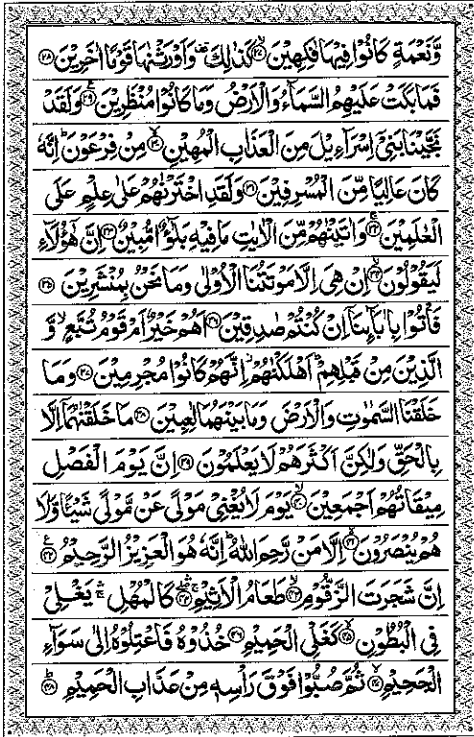 وَّنَعْمَةٍ كَانُوْا فِيْهَا فٰكِهِيْنَ ۙ۝۲۷ كَذٰلِكَ ۣ وَاَوْرَثْنٰهَا قَوْمًا اٰخَرِيْنَ ۝۲۸
فَمَا بَكَتْ عَلَيْهِمُ السَّمَآءُ وَالْاَرْضُ وَمَا كَانُوْا مُنْظَرِيْنَ ۝۲۹ وَلَقَدْ
نَجَّيْنَا بَنِيْٓ اِسْرَآءِيْلَ مِنَ الْعَذَابِ الْمُهِيْنِ ۙ۝۳۰ مِنْ فِرْعَوْنَ ؕ اِنَّهٗ
كَانَ عَالِيًا مِّنَ الْمُسْرِفِيْنَ ۝۳۱ وَلَقَدِ اخْتَرْنٰهُمْ عَلٰى عِلْمٍ عَلَى
الْعٰلَمِيْنَ ۚ۝۳۲ وَاٰتَيْنٰهُمْ مِّنَ الْاٰيٰتِ مَا فِيْهِ بَلٰٓؤٌا مُّبِيْنٌ ۝۳۳ اِنَّ هٰٓؤُلَآءِ
لَيَقُوْلُوْنَ ۙ۝۳۴ اِنْ هِيَ اِلَّا مَوْتَتُنَا الْاُوْلٰى وَمَا نَحْنُ بِمُنْشَرِيْنَ ۝۳۵
فَاْتُوْا بِاٰبَآئِنَآ اِنْ كُنْتُمْ صٰدِقِيْنَ ۝۳۶ اَهُمْ خَيْرٌ اَمْ قَوْمُ تُبَّعٍ ۙ وَّ
الَّذِيْنَ مِنْ قَبْلِهِمْ ؕ اَهْلَكْنٰهُمْ ؗ اِنَّهُمْ كَانُوْا مُجْرِمِيْنَ ۝۳۷ وَمَا
خَلَقْنَا السَّمٰوٰتِ وَالْاَرْضَ وَمَا بَيْنَهُمَا لٰعِبِيْنَ ۝۳۸ مَا خَلَقْنٰهُمَآ اِلَّا
بِالْحَقِّ وَلٰكِنَّ اَكْثَرَهُمْ لَا يَعْلَمُوْنَ ۝۳۹ اِنَّ يَوْمَ الْفَصْلِ
مِيْقَاتُهُمْ اَجْمَعِيْنَ ۙ۝۴۰ يَوْمَ لَا يُغْنِيْ مَوْلًى عَنْ مَّوْلًى شَيْـًٔا وَّلَا
هُمْ يُنْصَرُوْنَ ۙ۝۴۱ اِلَّا مَنْ رَّحِمَ اللّٰهُ ؕ اِنَّهٗ هُوَ الْعَزِيْزُ الرَّحِيْمُ ۝۴۲
اِنَّ شَجَرَتَ الزَّقُّوْمِ ۙ۝۴۳ طَعَامُ الْاَثِيْمِ ۝۴۴ كَالْمُهْلِ ۚ يَغْلِيْ
فِي الْبُطُوْنِ ۙ۝۴۵ كَغَلْيِ الْحَمِيْمِ ۝۴۶ خُذُوْهُ فَاعْتِلُوْهُ اِلٰى سَوَآءِ
الْجَحِيْمِ ۝۴۷ ثُمَّ صُبُّوْا فَوْقَ رَاْسِهٖ مِنْ عَذَابِ الْحَمِيْمِ ؕ۝۴۸